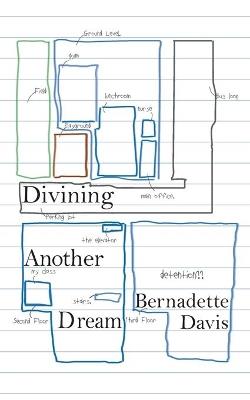 Ground Level
gym
Field
lunchroom
nurse
bus lane
playground
main office
Divining
parking lot
the elevator
Another
my class
detention??
stairs
Bernadette
Second Floor
Dream
third Floor
Davis